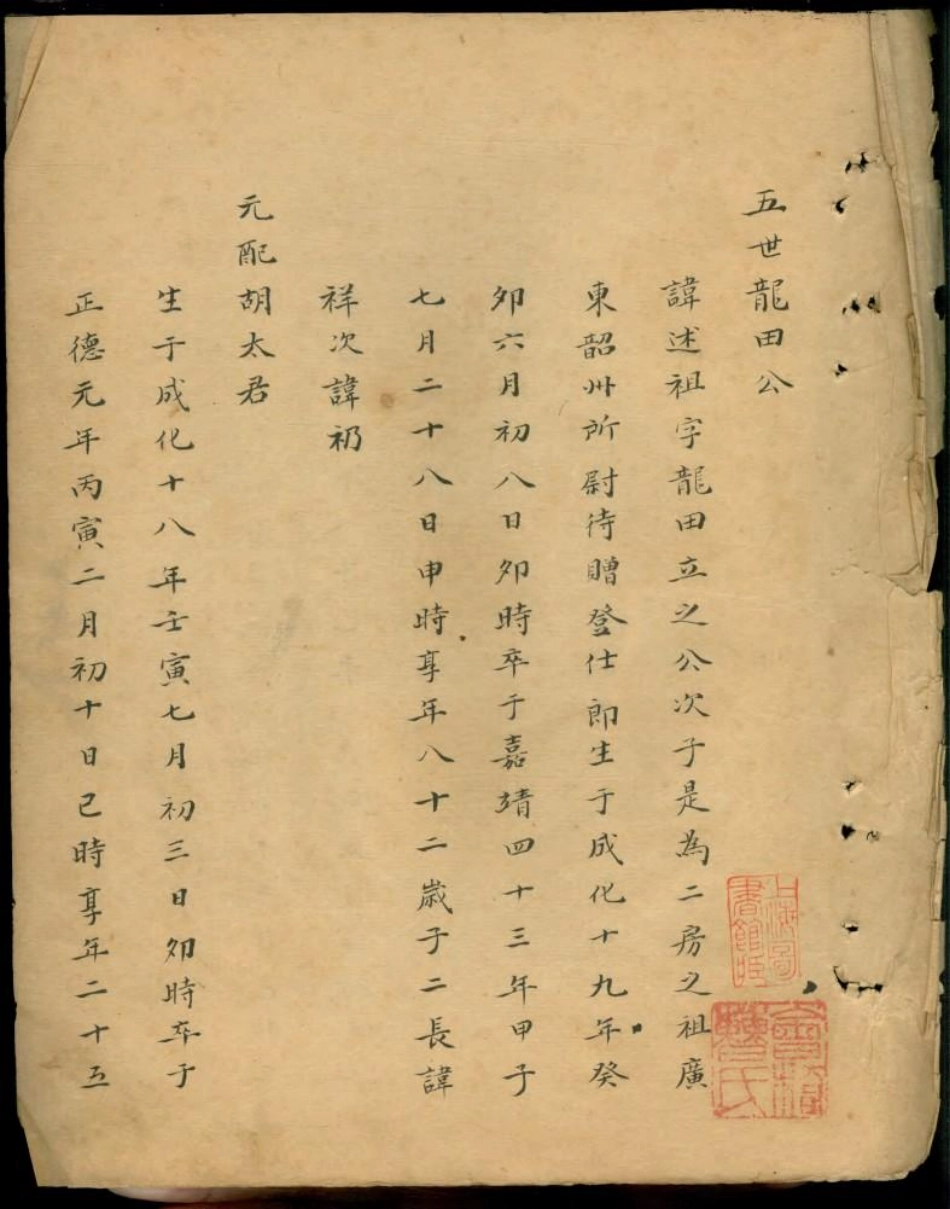 五世龍田公
諱述祖字龍田立之公次子是為二房之祖廣
東韶州所尉待贈登仕郎生于成化十九年癸
夘六月初八日夘時卒于嘉靖四十三年甲子
七月二十八日申時享年八十二歲子二長諱
祥次諱礽
元配胡太君
生于成化十八年壬寅七月初三日夘時卒于
正德元年丙寅二月初十日己時享年二十五
上海圖
書館藏